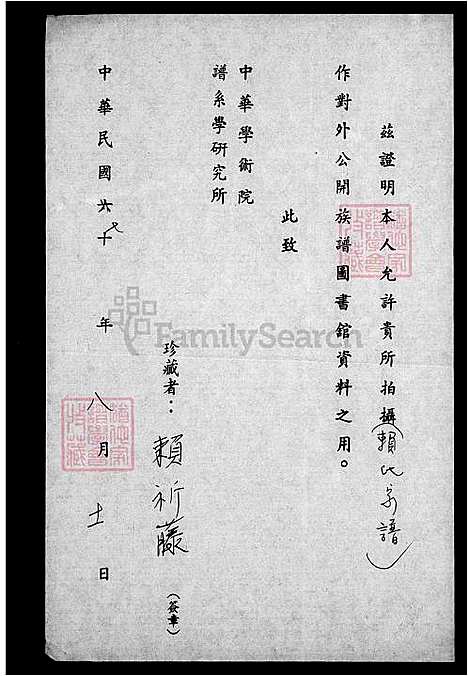 茲證明本人允許貴所拍攝(賴氏宗譜)
作對外公開族譜圖書館資料之用。
此致
中華學術院
譜系學研究所
珍藏者：賴祈藤(簽章)
中華民國六十七年八月十一日
FamilySearch